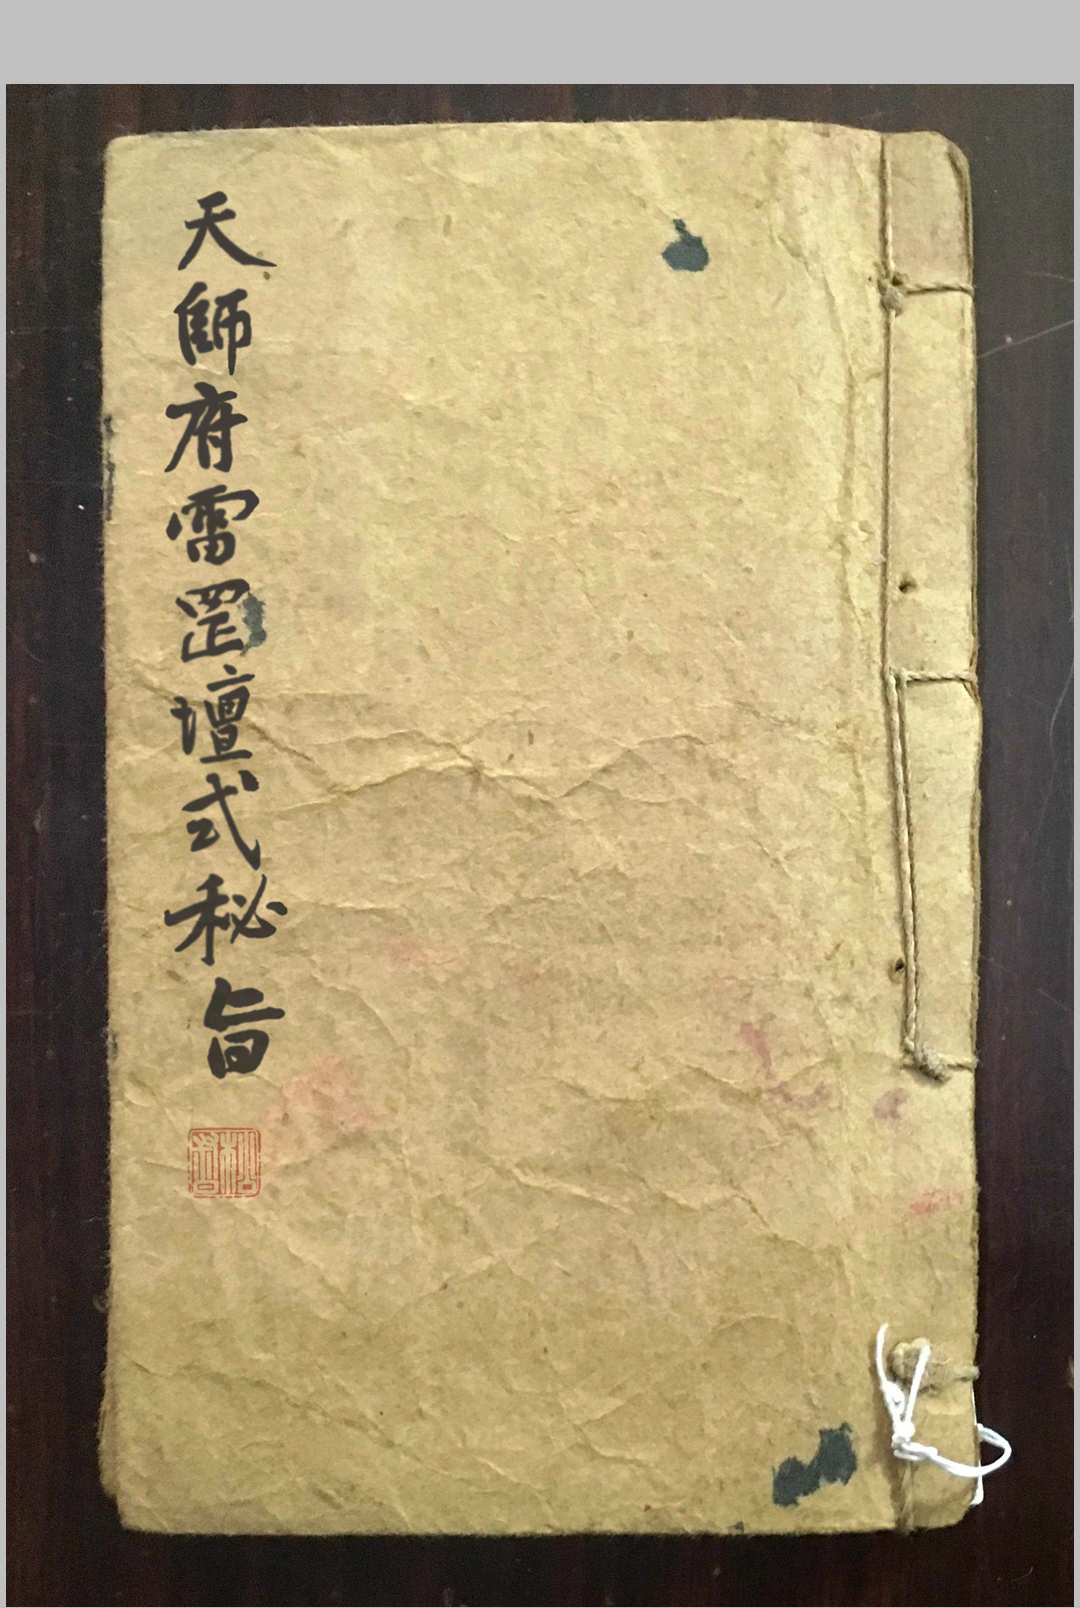 天師府雷罡壇式秘旨